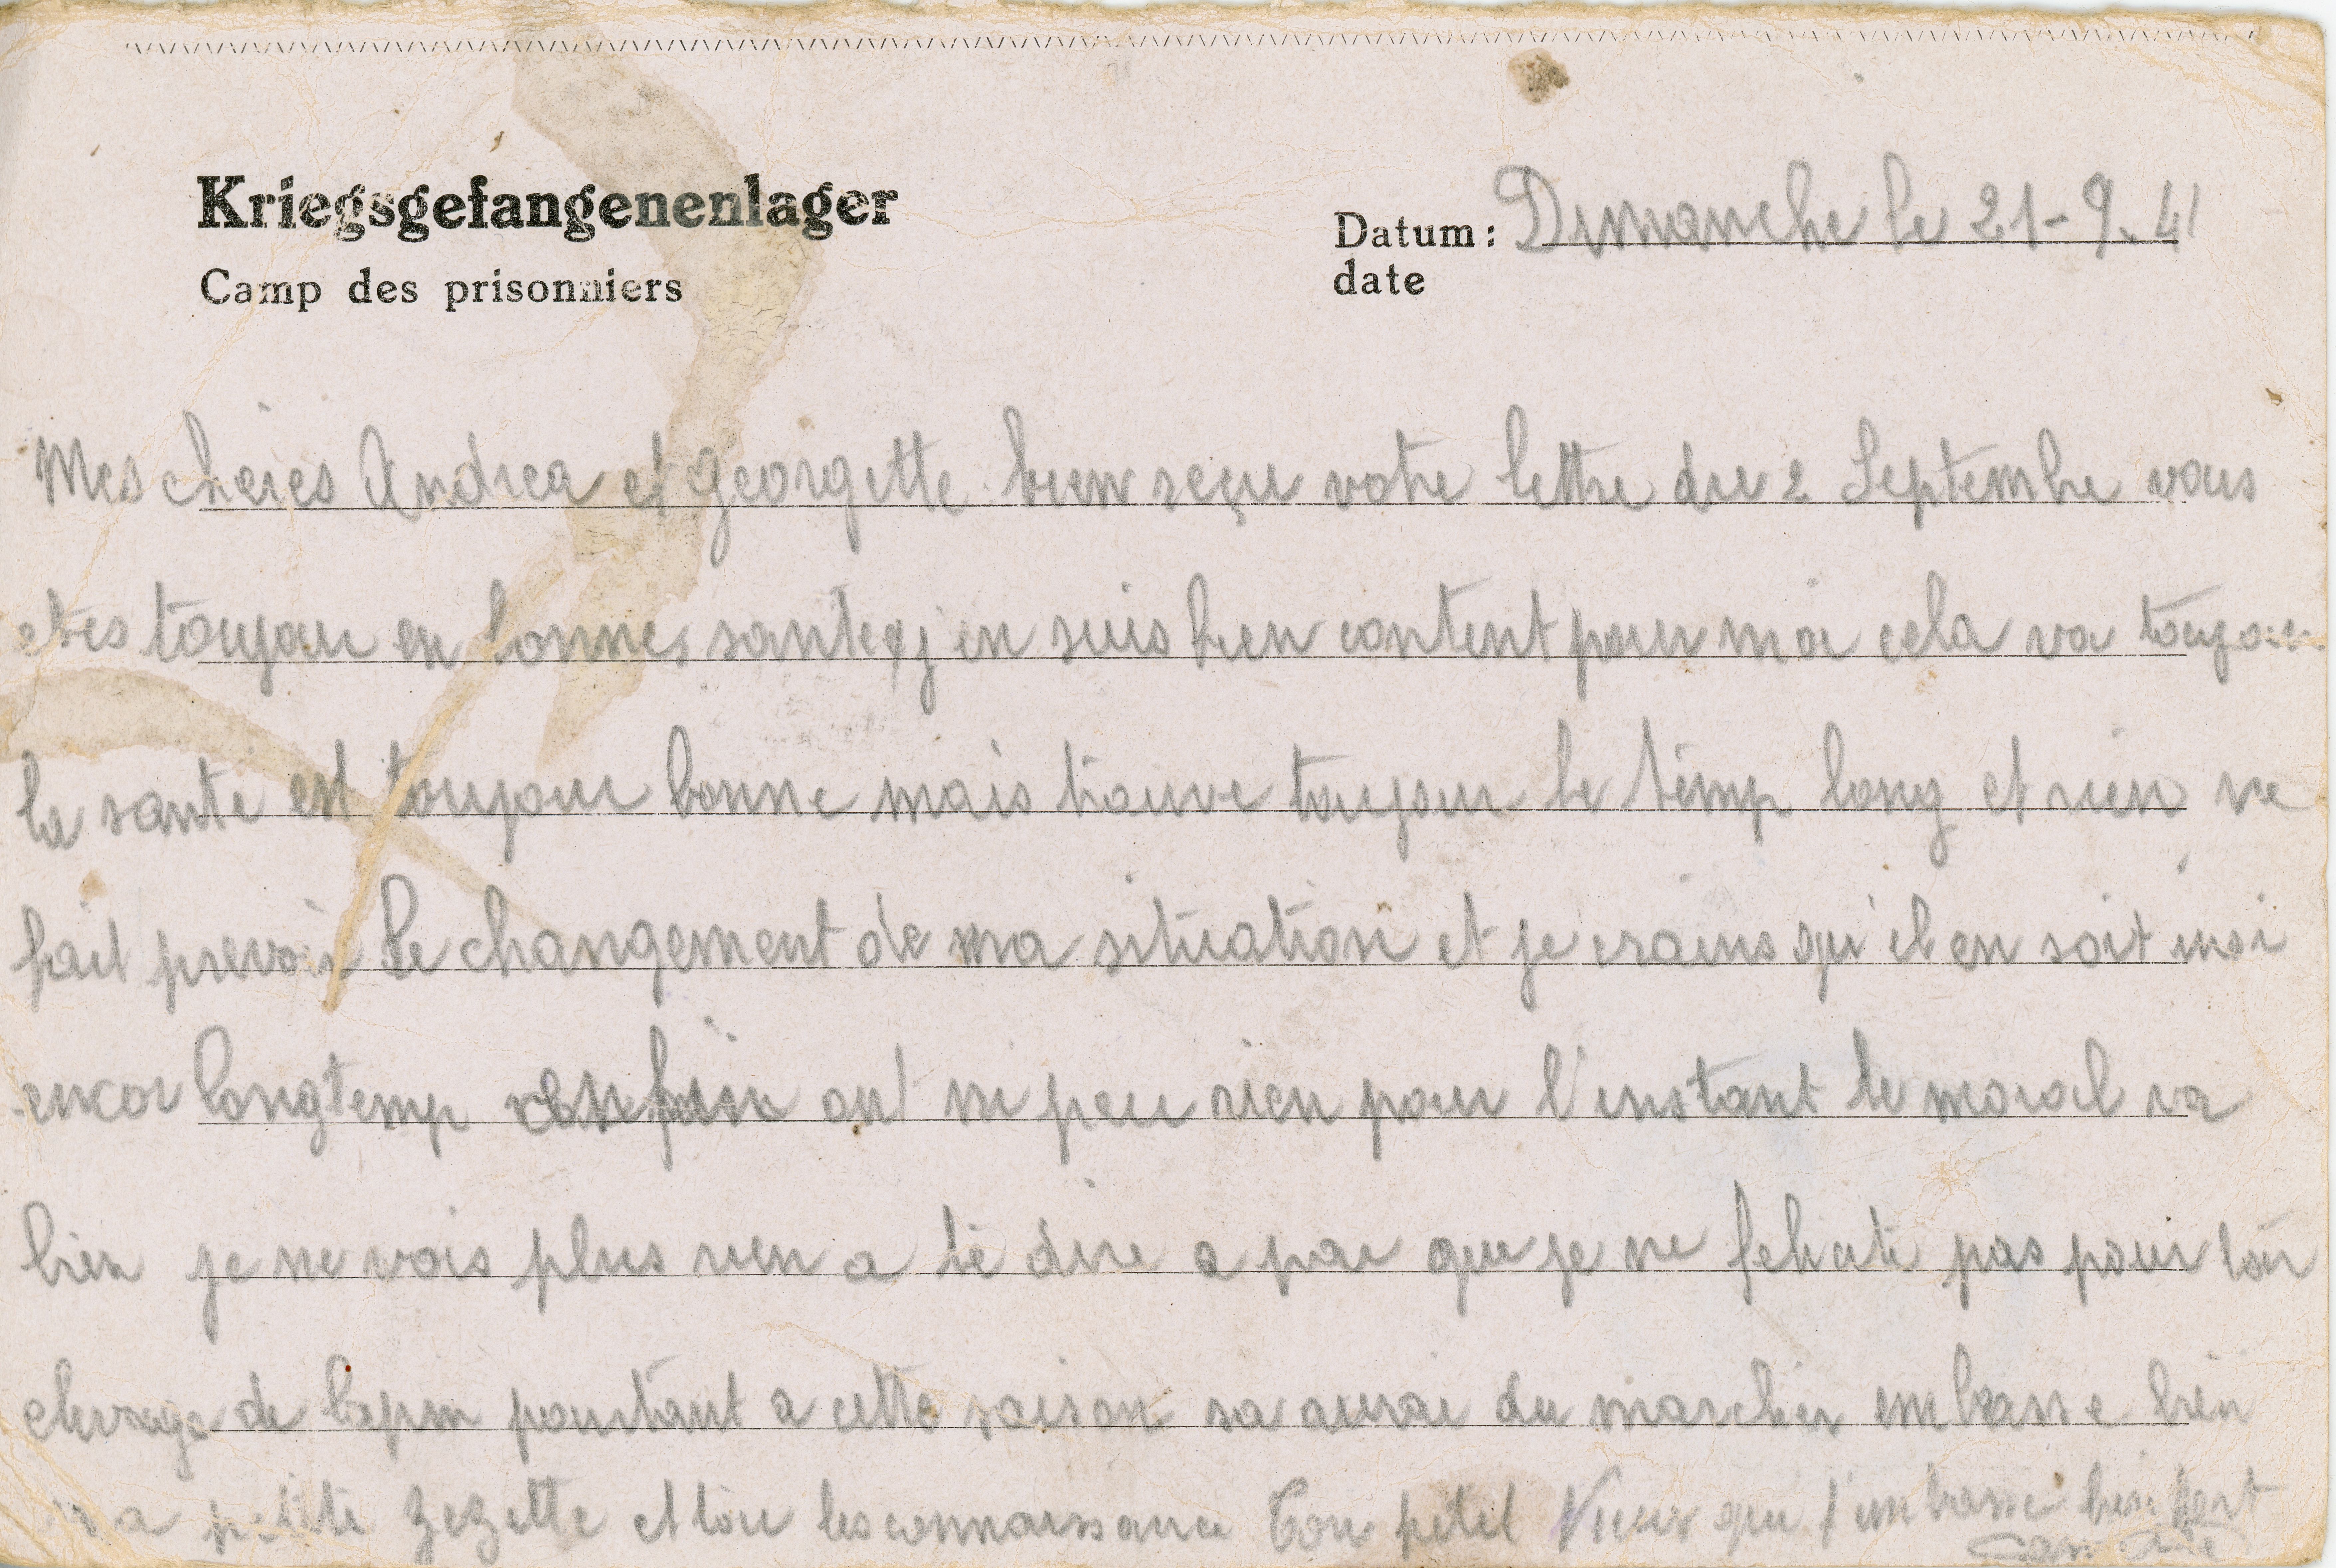 Kriegsgefangenenlager
Camp des prisonniers
Datum: Dimanche le 21-9.41
date
Mes chères Andrea et Georgette bien reçu votre lettre du 2 Septembre vous
etes toujour en bonnes sante j en suis bien content pour moi cela va toujour
la sante est toujour bonne mais trouve toujour le temp long et rien ne
fait prevoir le changement de ma situation et je crains qu'il en soit insi
encor longtemp enfin ont ni peu rien pour l'instant le moral va
bien je ne vois plus rien a te dire a par que je ne felicite pas pour ton
elevage de lapin pourtant a cette saison sa aurai du marcher embrasse bien
ma petite Zezette et tou les connaissance Ton petit Vieux que t'embrasse bien fort